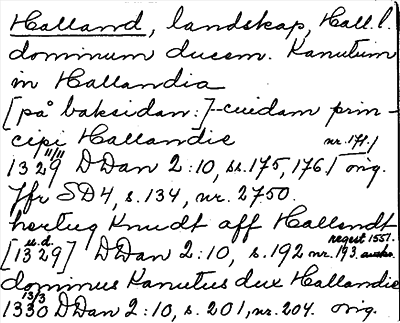 Halland, landskap, Hall. l.
dominum ducem. Kanutum
in Hallandia
[på baksidan:]-cuidam prin-
cipi Hallandie nr. 171.]
1329 11/11 DDan 2:10, ss. 175, 176. orig.
Jfr SD4, s. 134, nr. 2750.
hertug Knudt aff Hallandt
[1329] u.d. DDan 2:10, s. 192 nr. 193. regest 1551.
dominus Kanutus dux Hallandie
1330 13/3 DDan 2:10, s. 201, nr. 204. orig.